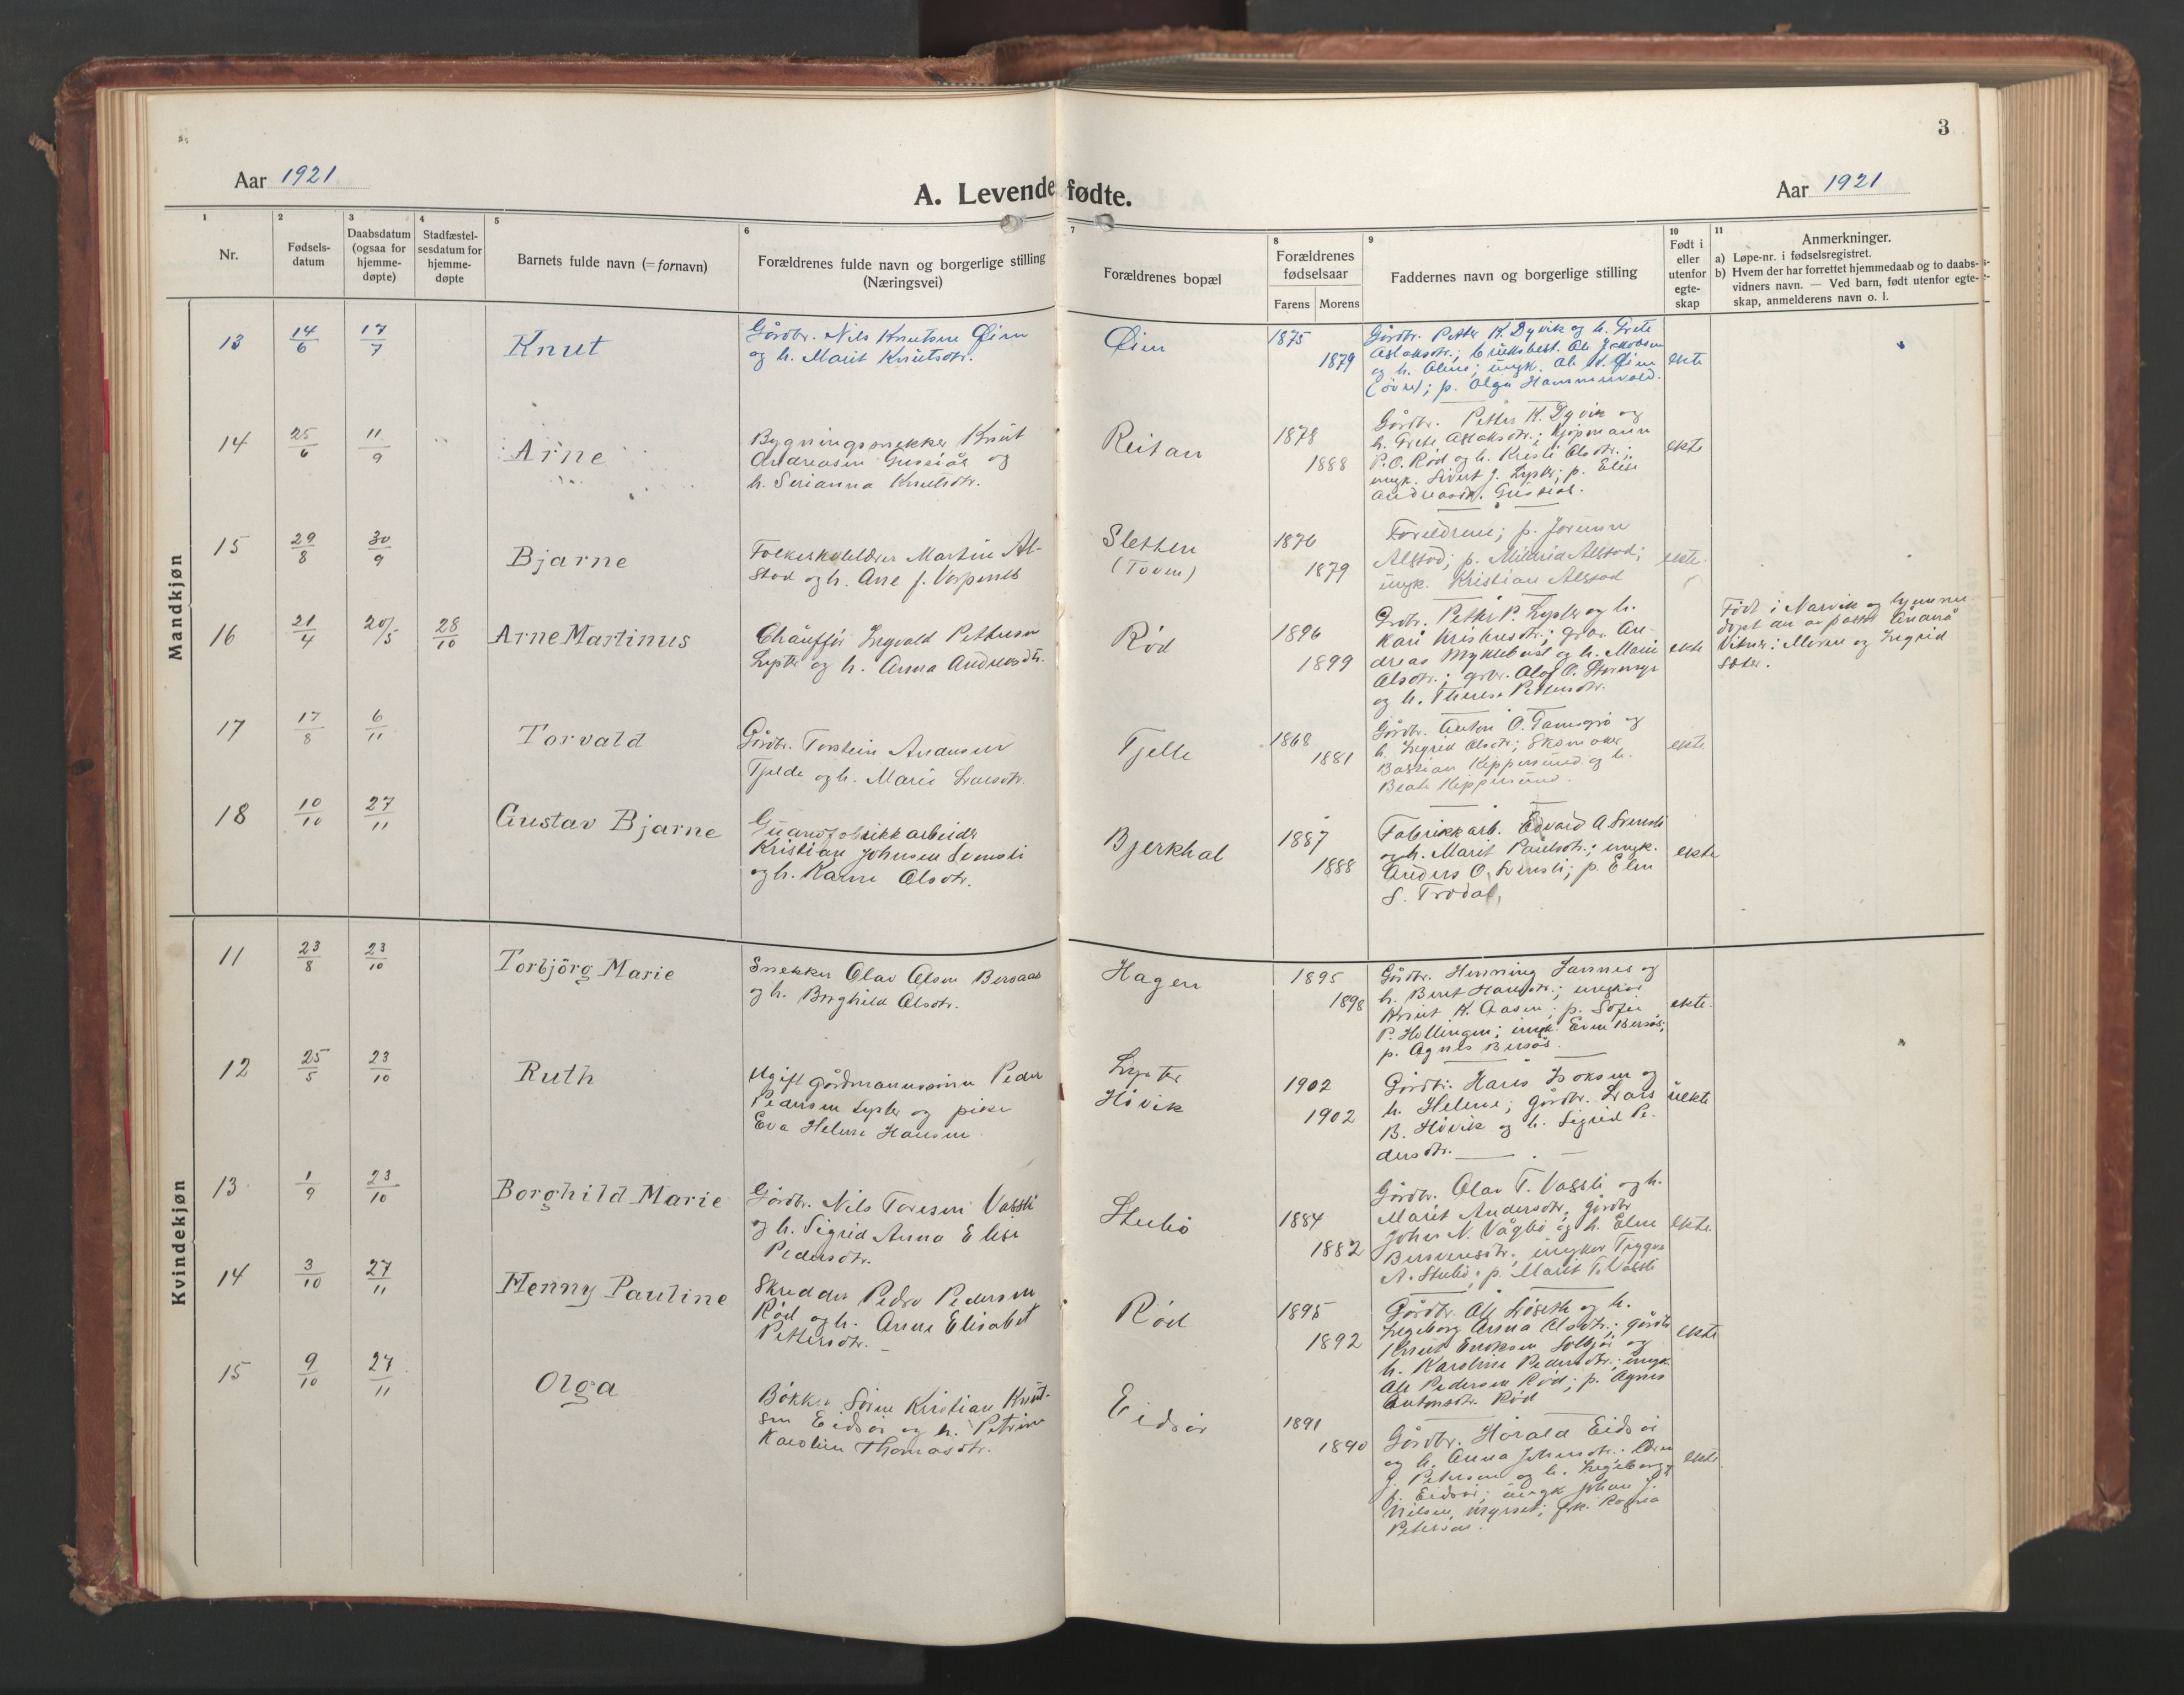 3
Aar 1921
A. Levende fødte.
Aar 1921
1
2
3
4
5
6
7
8
9
10
11
Nr.
Fødsels-
datum
Daabsdatum
(ogsaa for
hjemme-
døpte)
Stadfæstel-
sesdatum for
hjemme-
døpte
Barnets fulde navn (= fornavn)
Forældrenes fulde navn og borgerlige stilling
(Næringsvei)
Forældrenes bopæl
Forældrenes
fødselsaar
Farens Morens
Faddernes navn og borgerlige stilling
Født i
eller
utenfor
egte-
skap
Anmerkninger.
a) Løpe-nr. i fødselsregistret.
b) Hvem der har forrettet hjemmedaab og to daabs-
vidners navn. — Ved barn, født utenfor egte-
skap, anmelderens navn o. l.
Mandkjøn
13 14/6 17/7 Knut
Gårdbr. Nils Knutsen Øien
og h. Marit Knutsdtr.
Øien
1875
1879
Gårdbr. Petter K. Dyvik og h. Grete
Aslaksdtr.; Ole Jakobsen
og h. Oline; ungk. Ole Øien
(øvre); p. Olga Hammervold.
ekte
14 25/6 11/9 Arne
Bygningssnekker Knut
Andreasen og
h. Serianna Knutsdtr.
Reitan
1878
1888
Gårdbr. Petter K. Dyvik og
h. Grete Aslaksdtr.; kjøpmann
P.O. Rød og h. Kristi Olsdtr.;
ungk. Sivert J. Lyster; p. Elise
Andreasdtr.
ekte
15 29/8 30/9 Bjarne
Folkeskolelærer Martin Al-
stad og h. Ane f. Vorpenes
Sletten
(Toven)
1876
1879
Foreldrene; p. Jorunn
Alstad; p. Mildrid Alstad;
ungk. Kristian Alstad
ekte.
16 21/4 20/5 28/10 Arne Martinus
Chauffør Ingvald Pettersen
Lyster og h. Anna Andreasdtr.
Rød
1896
1899
Grbr. Petter P. Lyster og h.
Kari Kristensdtr.; grbr. An-
dreas Myklebust og h. Marie
Olsdtr.; grbr. Olaf O.
og h. Therese Pettersdtr.
ekte
Født i Narvik og hjemme
døpt av pastor
Vitner: Moren og Ingrid
Sæter.
17 17/8 6/11 Torvald
Gårdbr. Torstein Andersen
Tjelde og h. Marie Larsdtr.
Tjelle
1868
1881
Gårdbr. Anton O.
h. Ingrid Olsdtr; Skomaker
Bastian Kippersund og h.
Beate Kippersund.
ekte
18 10/10 27/11 Gustav Bjarne
Guanofabrikkarbeider
Kristian Johnsen
og h. Karen Olsdtr.
Bjerkhol
1887
1888
Fabrikkarb. Edvard A.
og h. Marit Paulsdtr.; ungk.
Anders O. p. Elen
S. Trodal,
ekte
Kvindekjøn
11 23/8 23/10 Torbjörg Marie
Snekker Olav Olsen Bersaas
og h. Borghild Olsdtr.
Hagen
1895
1898
Gårdbr. Henning og
h. Berit Hansdtr.; ungkar
Knut K. Aasen; p. Sofie
P. Hellingen; ungk. Even Bersås;
p. Agnes Bersås.
ekte.
12 25/5 23/10 Ruth
Ugift gårdmannssønn Peder
Pedersen Lyster og pike
Eva Helene Hansen
Lyster
Hövik
1902
1902
Gårdbr. Hans Isaksen og
h. Helene; gårdbr. Lars
B. Hövik og h. Sigrid Pe-
dersdtr.
uekte
13 1/9 23/10 Borghild Marie
Gårdbr. Nils Toresen Vassli
og h. Sigrid Anna Elise
Pedersdtr.
Stubö
1884
1882
Gårdbr. Olav T. Vassli og h.
Marit Andersdtr, gårdbr
Johan N. Vågbö og h. Elen
ungkar Trygve
A. Stubö; p. Marit T. Vassli
ekte.
14 3/10 27/11 Henny Pauline
Skredder Peder Pedersen
Rød og h. Anna Elisabet
Pettersdtr.
Rød
1895
1892
Gårdbr. Ole Løseth og h.
Ingeborg Anna Olsdtr.; gårdbr
Knut Eriksen Solbjør og
h. Karoline Pedersdtr.; ungk.
Ole Pedersen Rød; p. Agnes
Antonsdtr. Rød
ekte
15 9/10 27/11 Olga
Bøkker Sören Kristian Knut-
sen Eidsör og h. Petrine
Karoline Thomasdtr.
Eidsör
1891
1890
Gårdbr. Harald Eidsör
og h. Anna Johnsdtr.;
J. Petersen og h. Ingeborg
f. Eidsör; ungk Johan J.
Nilsen, Myrset; frk. Ragna
Petersen.
ekte